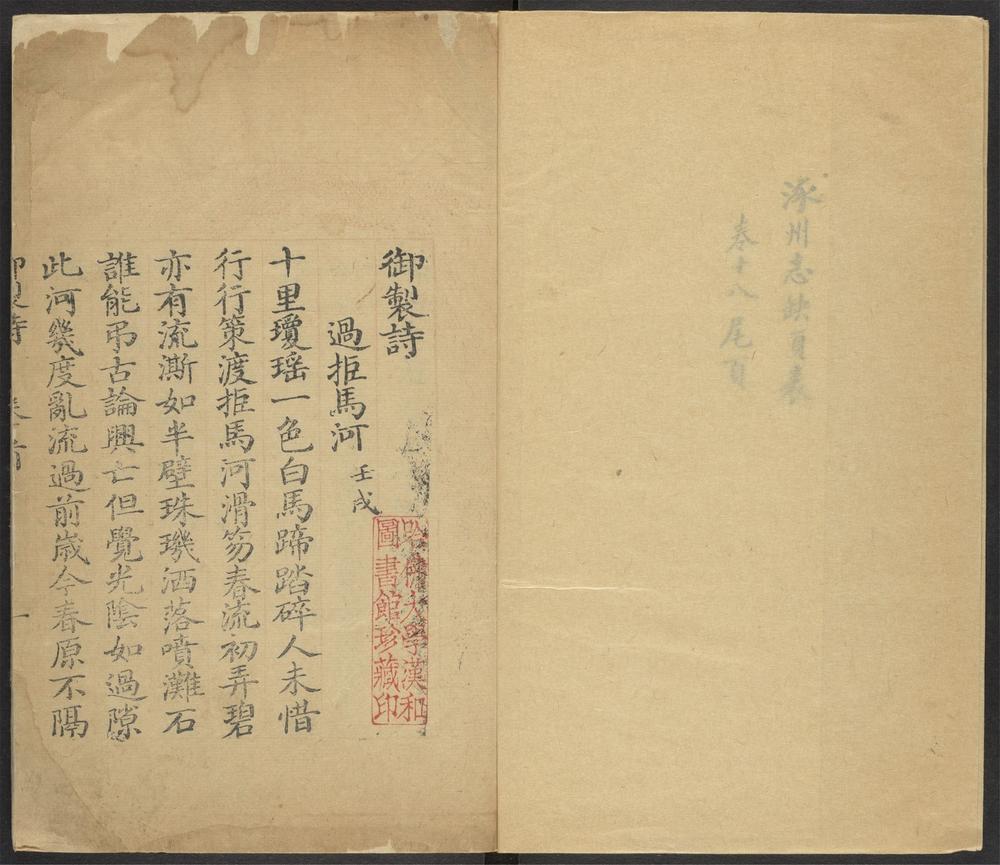 涿州志缺頁表
卷十八尾頁
御製詩
過拒馬河 壬戌
十里瓊瑶一色白馬蹄踏碎人未惜
行行策渡拒馬河滑笏春流初弄碧
亦有流澌如半壁珠璣洒落噴灘石
誰能弔古論興亡但覺光陰如過隙
此河幾度亂流過前歲今春原不隔
御製詩 卷首 一
哈佛大學漢和
圖書館珍藏印